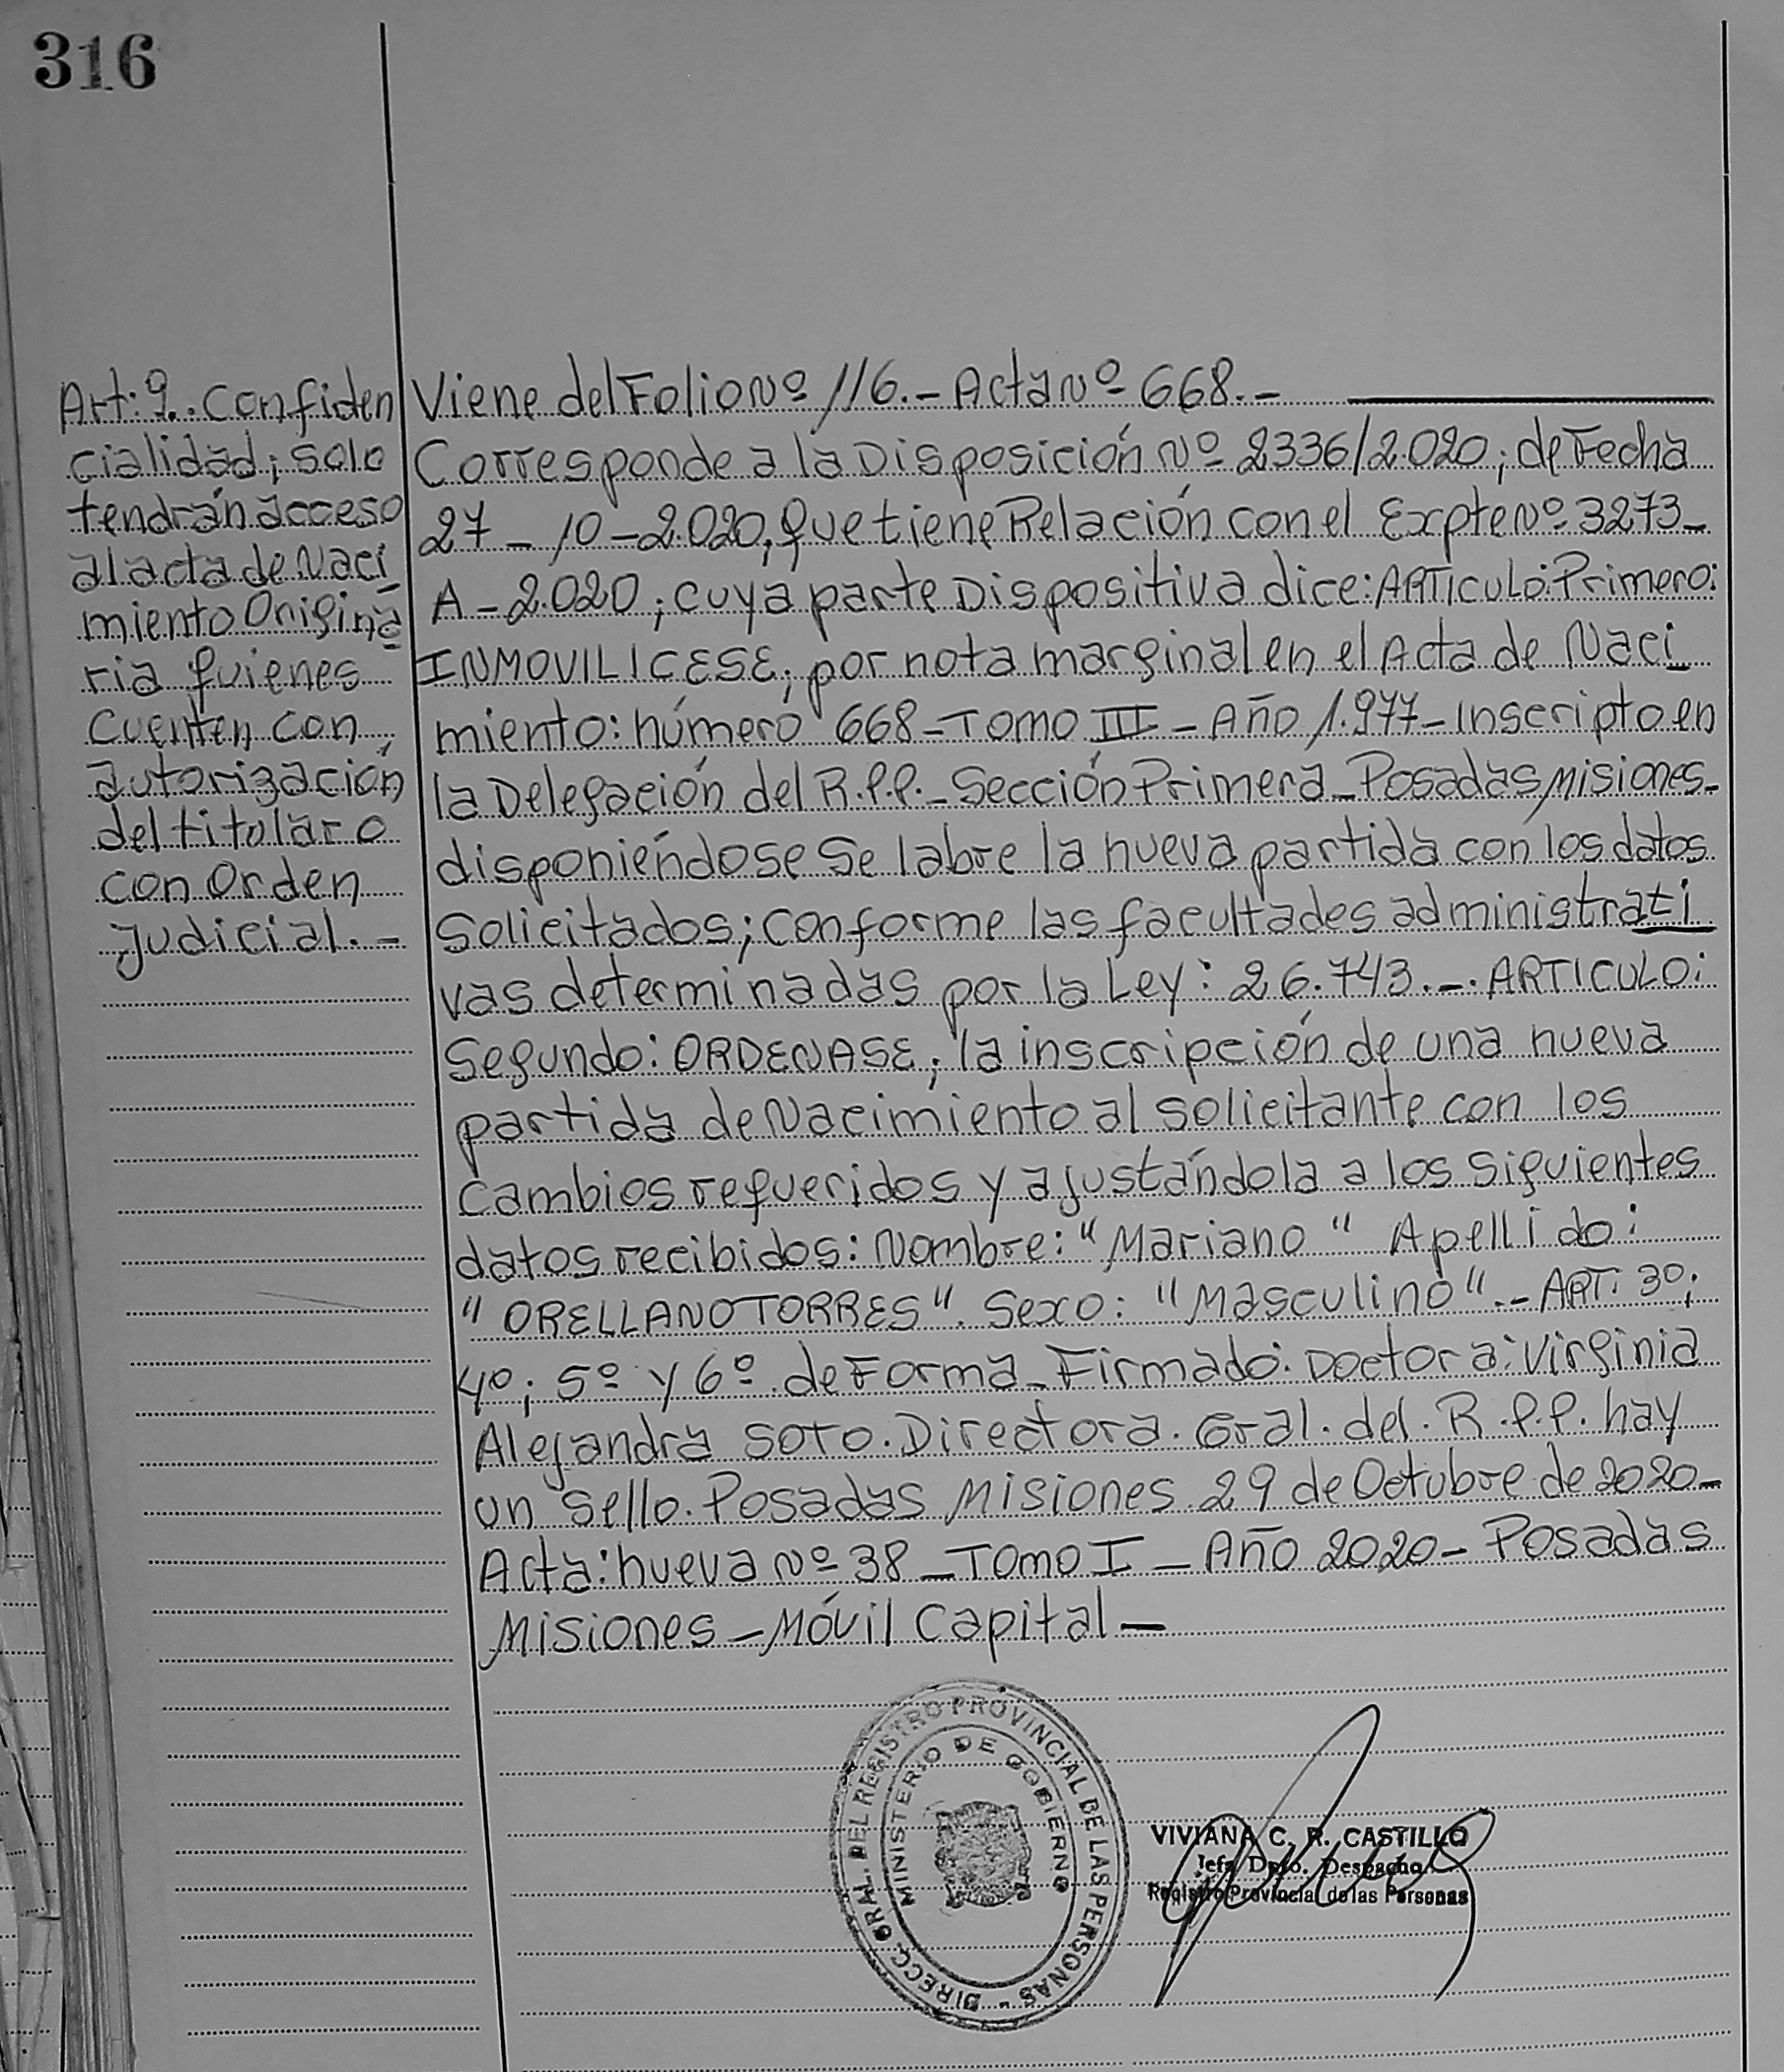 316
Art: 9.. Confiden
cialidad; solo
tendrán acceso
al acta de Naci
miento Origina
ria quienes
cuenten con
autorización
del titular o
con Orden
judicial. -
Viene del Folio Nº 116. - Acta Nº 668. -
Corresponde a la Disposición Nº 2336/2.020; de Fecha
27 - 10 - 2.020, que tiene Relación con el Expte Nº 3273 -
A - 2.020; cuya parte Dispositiva dice: ARTICULO: Primero:
INMOVILICESE; por nota marginal en el Acta de Naci
miento: número 668 - TOMO III - Año 1.977 - Inscripto en
la Delegación del R.P.P. - Sección Primera - Posadas Misiones -
disponiéndose Se labre la nueva partida con los datos
Solicitados; conforme las facultades administrati
vas determinadas por la Ley: 26.743. -. ARTICULO:
Segundo: ORDENASE; la inscripción de una nueva
partida de Nacimiento al solicitante con los
Cambios requeridos y ajustándola a los siguientes
datos recibidos: Nombre: "Mariano" Apellido:
"ORELLANO TORRES". Sexo: "Masculino". - ART: 3º;
4º; 5º y 6º. de Forma - Firmado: Doctora: Virginia
Alejandra SOTO. Directora. Gral. del. R.P.P. hay
un Sello. Posadas Misiones 29 de Octubre de 2020 -
Acta: nueva Nº 38 - TOMO I - Año 2020 - Posadas
Misiones - Móvil Capital -
DIRECC. GRAL. DEL REGISTRO PROVINCIAL DE LAS PERSONAS -
MINISTERIO DE GOBIERNO
VIVIANA C. R. CASTILLO
Jefa Dpto. Despacho
Registro Provincial de las Personas